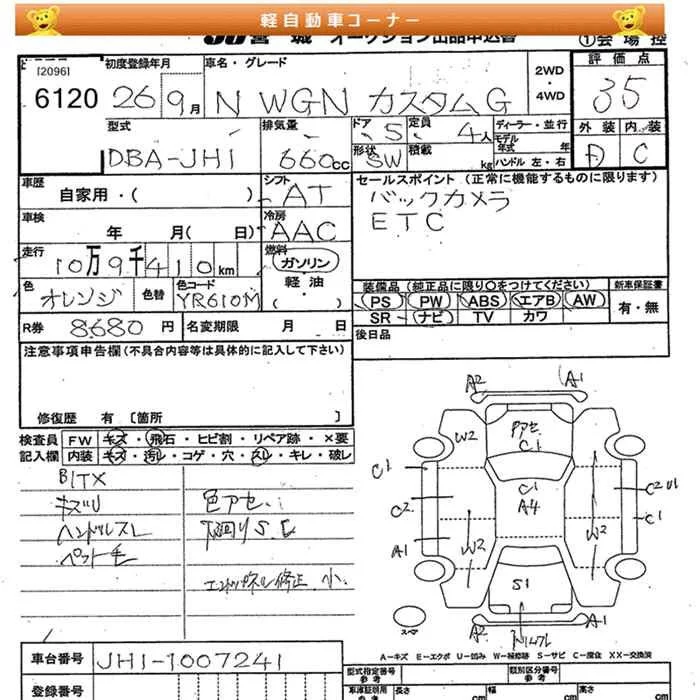 軽自動車コーナー
JU 宮 城 オークション出品申込書 ①会 場 控
[2096] 初度登録年月 車名・グレード 2WD・4WD 評価点
6120 26 9月 N WGN カスタムG 35
型式 排気量 ドア 定員 ディーラー・並行 外装 内装
DBA-JH1 660cc 5 4人 モデル年式 年 C
形状 SW 積載 kg ハンドル 左・右
車歴 自家用・( ) シフト AT セールスポイント (正常に機能するものに限ります)
バックカメラ
ETC
車検 年 月( 日) 冷房 AAC
走行 10万9千410km 燃料 ガソリン・軽油・( )
装備品 (純正品に限り○をつけてください) 新車保証書
色 オレンジ 色替 色コード YR610M
PS PW ABS エアB AW 有・無
SR ナビ TV カワ
R券 8680円 名変期限 月 日 後日品
注意事項申告欄(不具合内容等は具体的に記入して下さい)
修復歴 有 [箇所 ]
検査員 FW キズ・飛石・ヒビ割・リペア跡・×要
記入欄 内装 キズ・汚レ・コゲ・穴・スレ・キレ・破レ
キズU 色アセ
ハンドルスレ 下廻りS.C
ペット毛
小.
A2 A1
W2 アセ C1
C1 C1 A4 C2 U1
C2 C1
A1 W2 W2
S1
スペア A2 A1
A−キズ E−エクボ U−凹み W−補修跡 S−サビ C−腐食 XX−交換済
車台番号 JH1-1007241 型式指定番号 参考 類別区分番号 参考
登録番号 車庫証明用 参考 長さ cm 幅 cm 高さ cm